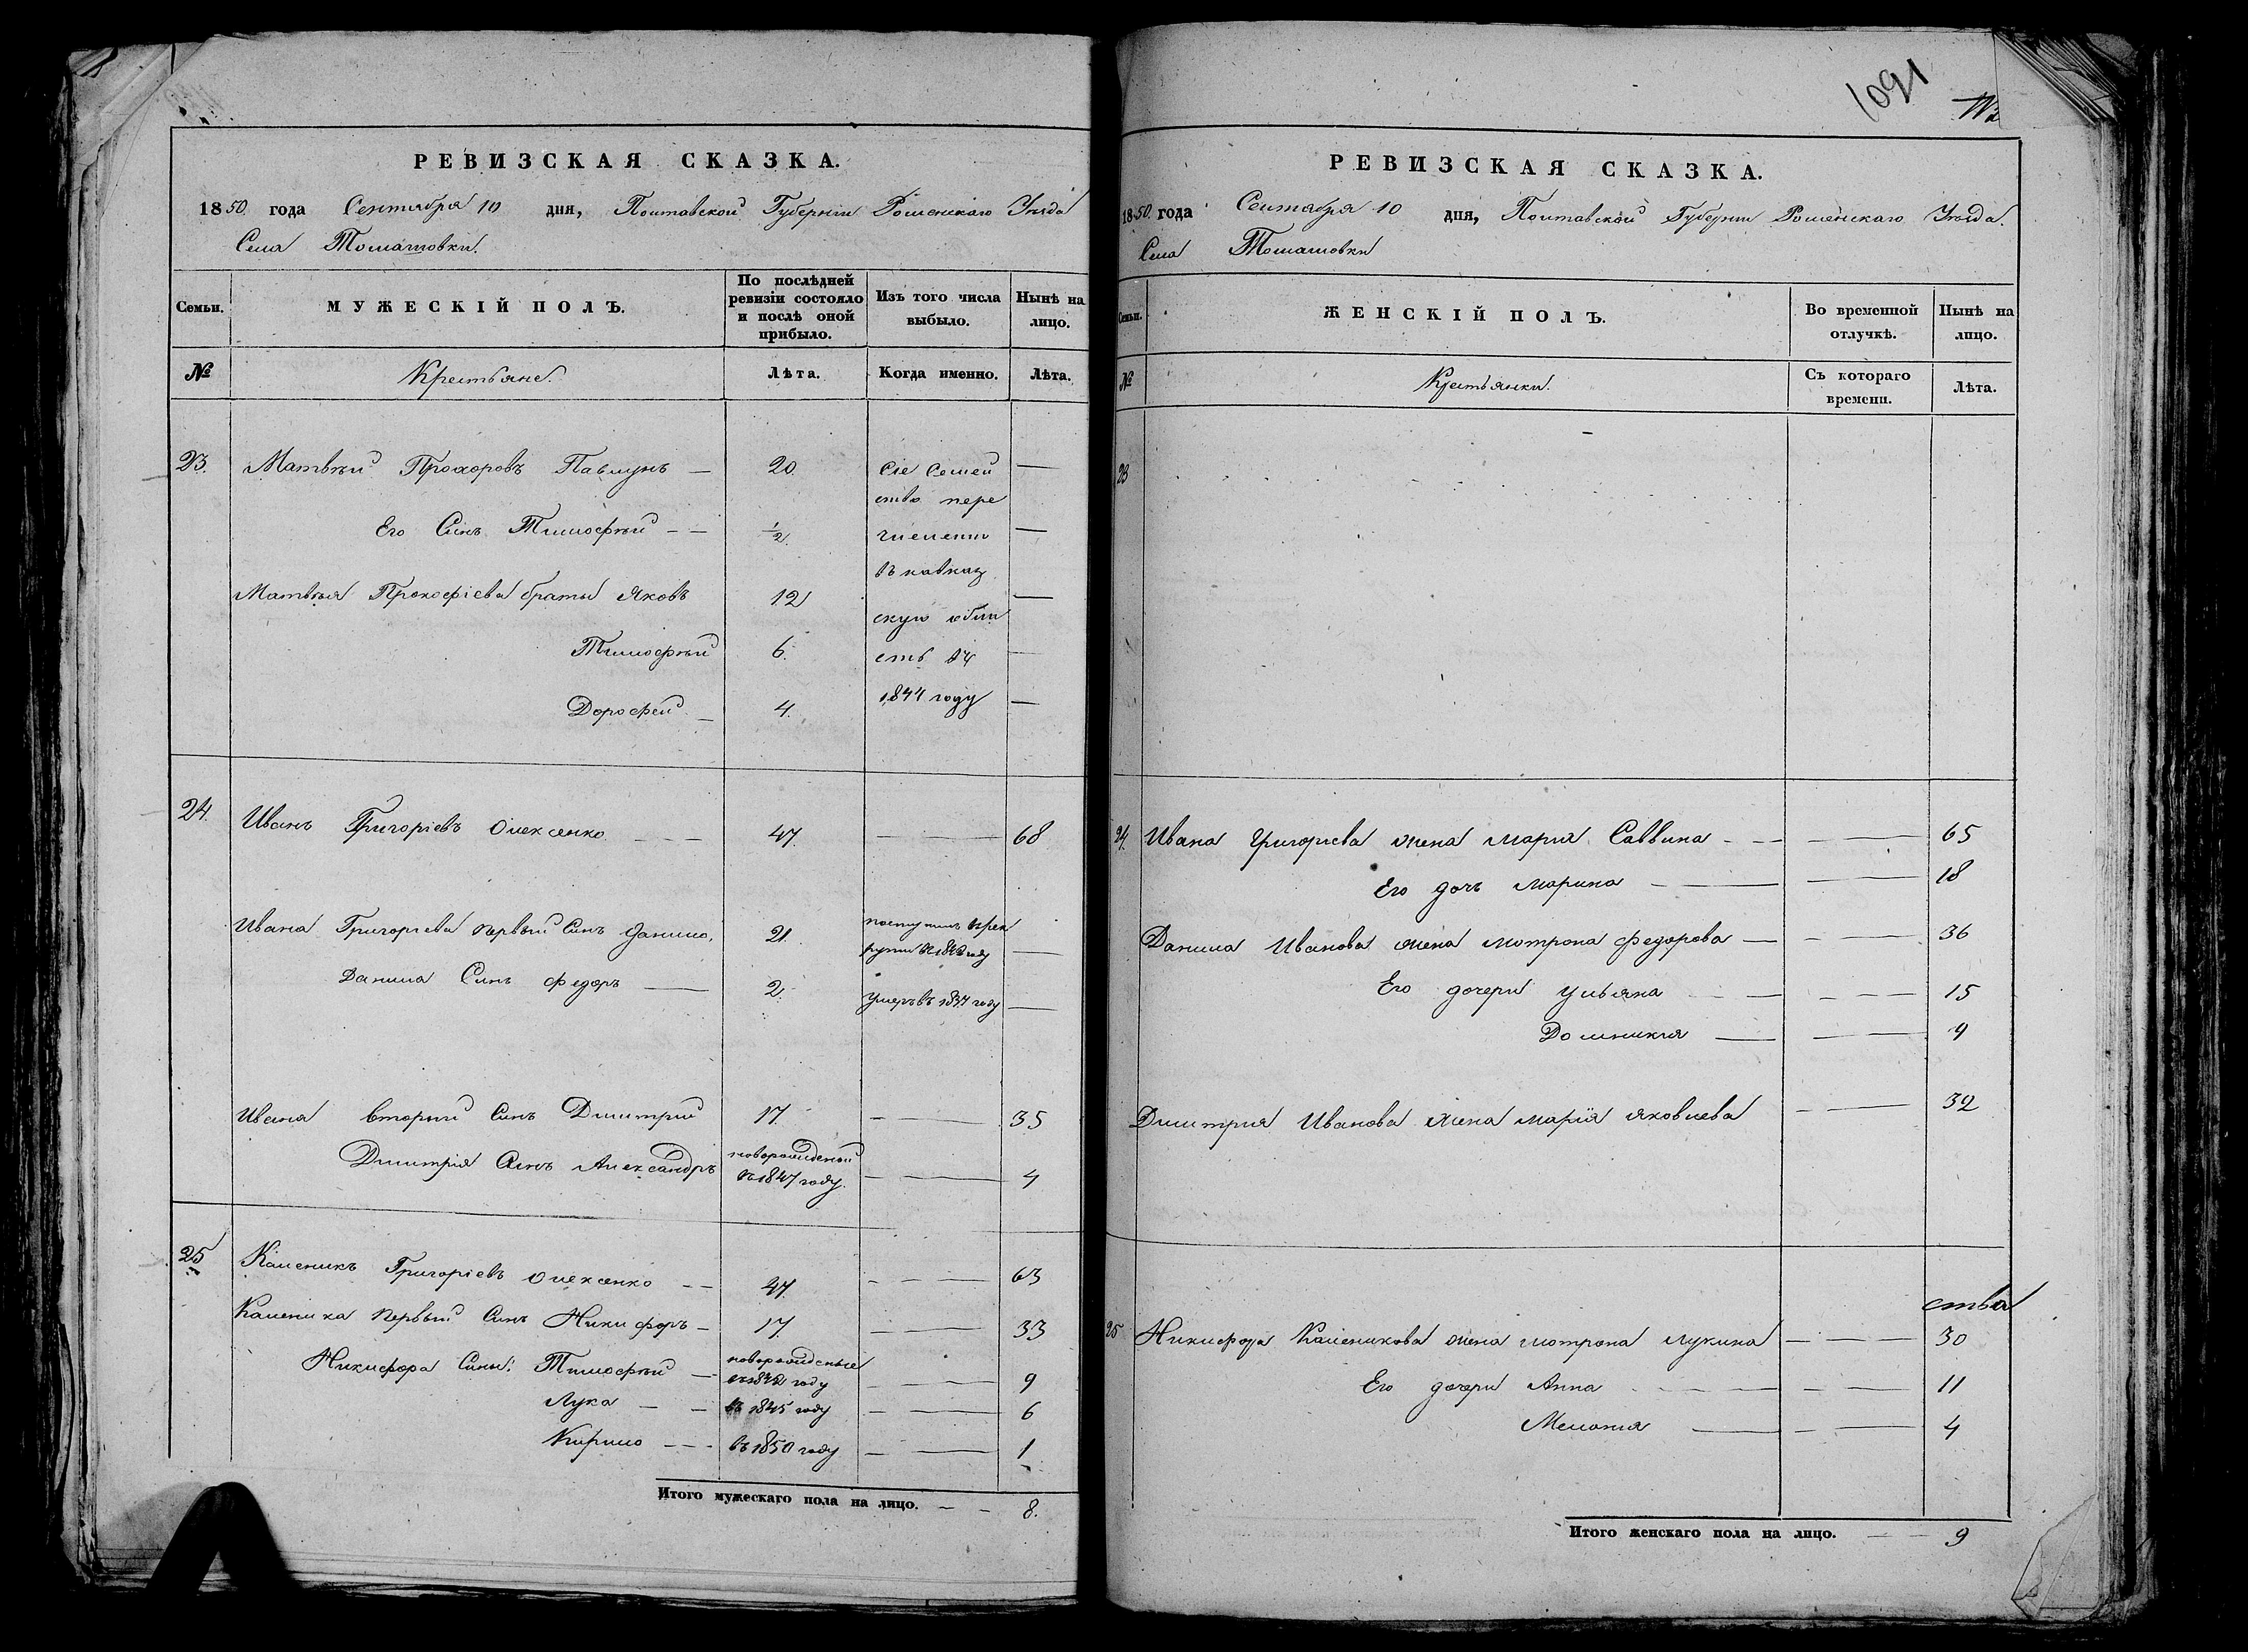 РЕВИЗСКАЯ СКАЗКА.
1850 года Сентября 10 дня, Полтавской Губерніи Роменскаго Уѣзда
Села Томашовки.
Семьи. МУЖЕСКІЙ ПОЛЪ. По послѣдней ревизіи состояло и послѣ оной прибыло. Изъ того числа выбыло. Нынѣ на лицо.
№ Крестьяне. Лѣта. Когда именно. Лѣта.
23. Матвѣй Прохоровъ Павлунъ — 20 Сіе Семей —
ство пере
Его Синъ Тимофѣй — — ½ числены —
въ кавказ
Матвѣя Прокофіева браты Яковъ 12 —
скую обла
Тимофѣй 6. сть въ —
Дорофей — 4. 1844 году —
24. Иванъ Григоріевъ Олексенко — — — 47. — 68
Ивана Григоріева первый Синъ Данило. 21. поступилъ в рек
руты въ 1843 году —
Данила Синъ Федоръ — 2. умеръ въ 1837 году —
Ивана вторый Синъ Дмитрий 17. — — 35
Дмитрія Синъ Александръ новорожденой
въ 1847 году. — — 4
25 Каленикъ Григоріевъ Олексенко — — 47. — — 63
Каленика первый Синъ Никифоръ — 17. — — 33
Никифора Сины: Тимофѣй — новорожденые
въ 1842 году — — 9
Лука — — въ 1845 году — — 6
Кирило — — — въ 1850 году — — 1
Итого мужескаго пола на лицо. — — 8.
1091
РЕВИЗСКАЯ СКАЗКА.
1850 года Сентября 10 дня, Полтавской Губерніи Роменскаго Уѣзда.
Села Томашовки
Семьи. ЖЕНСКІЙ ПОЛЪ. Во временной отлучкѣ. Нынѣ на лицо.
№ Крестьянки. Съ котораго времени. Лѣта.
23
24. Ивана Григорієва жена Мария Саввина — — — — — 65
Его дочь Марина — — — 18
Данила Иванова жена Мотрона Федорова — — — 36
Его дочери Ульяна — — — — — 15
Домникия — — — 9
Дмитрия Иванова жена Марія Яковлева — — 32
ства
25 Никифора Каленикова жена Мотрона Лукина — — 30
Его дочери Анна — — — — — 11
Мелания — — — 4
Итого женскаго пола на лицо. — — 9